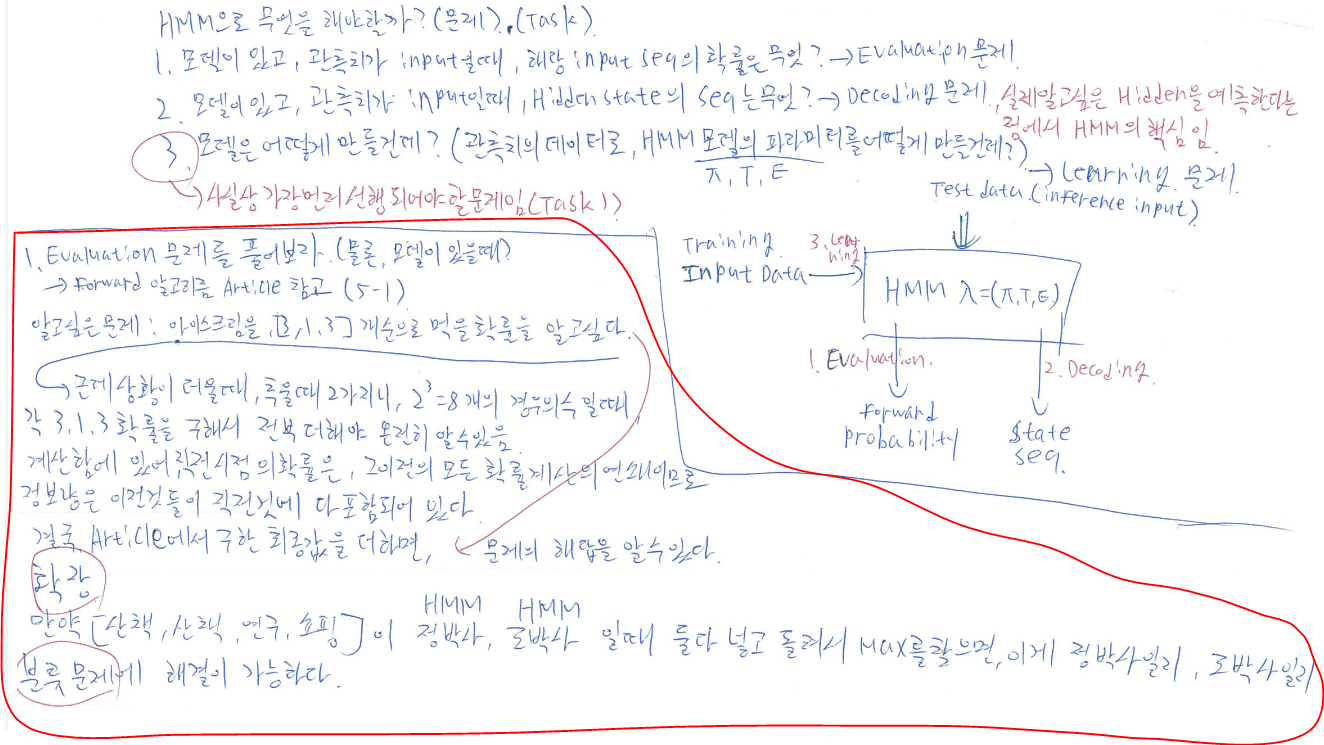 HMM으로 무엇을 해야할까? (문제). (Task)
1. 모델이 있고, 관측치가 input일때, 해당 input seq의 확률은 무엇? → Evaluation 문제
2. 모델이 있고, 관측치가 input일때, Hidden state의 seq는 무엇? → Decoding 문제, 실제알고싶은 Hidden을 예측한다는
점에서 HMM의 핵심임.
3. 모델은 어떻게 만들건데? (관측치의 데이터로, HMM 모델의 파라미터를 어떻게 만들건데?)
π, T, E
→ Learning 문제.
→ 사실상 가장먼저 선행 되어야할 문제임 (Task 1)
Test data (inference input)
Training
Input Data
3. Lear
ning
HMM λ=(π,T,E)
1. Evaluation.
2. Decoding.
Forward
probability
state
seq.
1. Evaluation 문제를 풀어보자. (물론, 모델이 있을때)
→ Forward 알고리즘 Article 참고 (5-1)
알고싶은 문제 : 아이스크림을 [3, 1, 3] 개수으로 먹을 확률을 알고싶다.
→ 근데 상황이 더울때, 추울때 2가지니, 2³=8개의 경우의수 일때
각 3.1.3 확률을 구해서 전부 더해야 온전히 알수있음
계산함에 있어 직전시점의 확률은, 그이전의 모든 확률계산의 연쇄이므로
정보량은 이전것들이 직전것에 다 포함되어 있다.
결국, Article에서 구한 최종값을 더하면, ← 문제의 해답을 알수있다.
확장
HMM HMM
만약 [산책, 산책, 연구, 쇼핑] 이 정박사, 로박사 일때 둘다 넣고 돌려서 Max를 찾으면, 이게 정박사일지, 로박사일지
분류 문제에 해결이 가능하다.